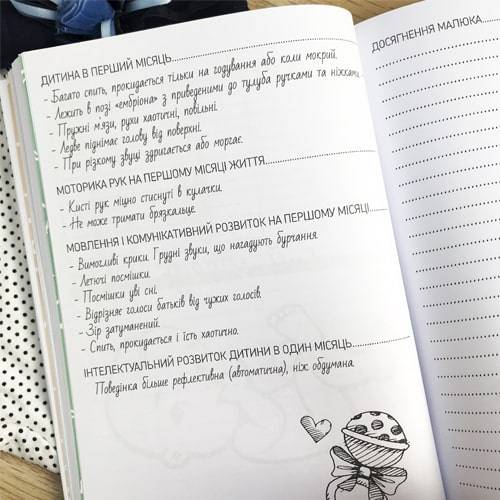 ДИТИНА В ПЕРШИЙ МІСЯЦЬ
- Багато спить, прокидається тільки на годування або коли мокрий.
- Лежить в позі «ембріона» з приведеними до тулуба ручками та ніжками.
- Пружні м'язи, рухи хаотичні, повільні.
- Ледве піднімає голову від поверхні.
- При різкому звуці здригається або моргає.
МОТОРИКА РУК НА ПЕРШОМУ МІСЯЦІ ЖИТТЯ
- Кисті рук міцно стиснуті в кулачки.
- Не може тримати брязкальце.
МОВЛЕННЯ І КОМУНІКАТИВНИЙ РОЗВИТОК НА ПЕРШОМУ МІСЯЦІ
- Вимогливі крики. Грудні звуки, що нагадують бурчання.
- Летючі посмішки.
- Посмішки уві сні.
- Відрізняє голоси батьків від чужих голосів.
- Зір затуманений.
- Спить, прокидається і їсть хаотично.
ІНТЕЛЕКТУАЛЬНИЙ РОЗВИТОК ДИТИНИ В ОДИН МІСЯЦЬ
Поведінка більше рефлективна (автоматична), ніж обдумана.
ДОСЯГНЕННЯ МАЛЮКА